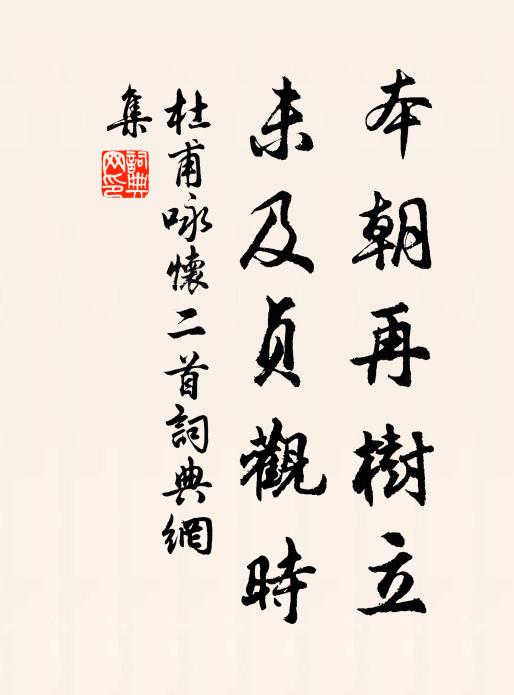 本朝再樹立
未及贞觀時
杜甫咏懷二首詞典網
集
詞典
网印